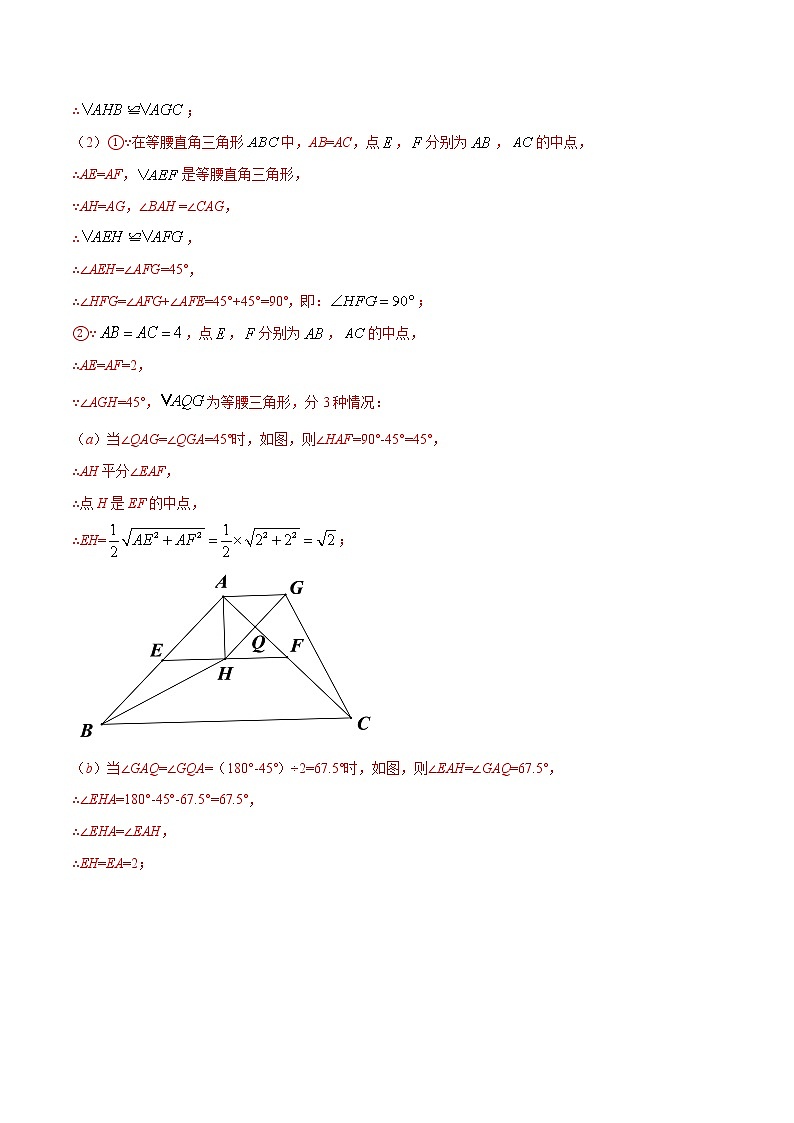 ∴▽AHB≌▽AGC；
（2）①∵在等腰直角三角形ABC中，AB=AC，点E，F分别为AB，AC的中点，
∴AE=AF，▽AEF是等腰直角三角形，
∵AH=AG，∠BAH=∠CAG，
∴▽AEH≌▽AFG，
∴∠AEH=∠AFG=45°，
∴∠HFG=∠AFG+∠AFE=45°+45°=90°，即：∠HFG=90°；
②∵AB=AC=4，点E，F分别为AB，AC的中点，
∴AE=AF=2，
∵∠AGH=45°，▽AQG为等腰三角形，分3种情况：
（a）当∠QAG=∠QGA=45°时，如图，则∠HAF=90°-45°=45°，
∴AH平分∠EAF，
∴点H是EF的中点，
∴EH=1/2√(AE²+AF²)=1/2×√(2²+2²)=√2；
A
G
E
Q
F
H
B
C
（b）当∠GAQ=∠GQA=（180°-45°）÷2=67.5°时，如图，则∠EAH=∠GAQ=67.5°，
∴∠EHA=180°-45°-67.5°=67.5°，
∴∠EHA=∠EAH，
∴EH=EA=2；